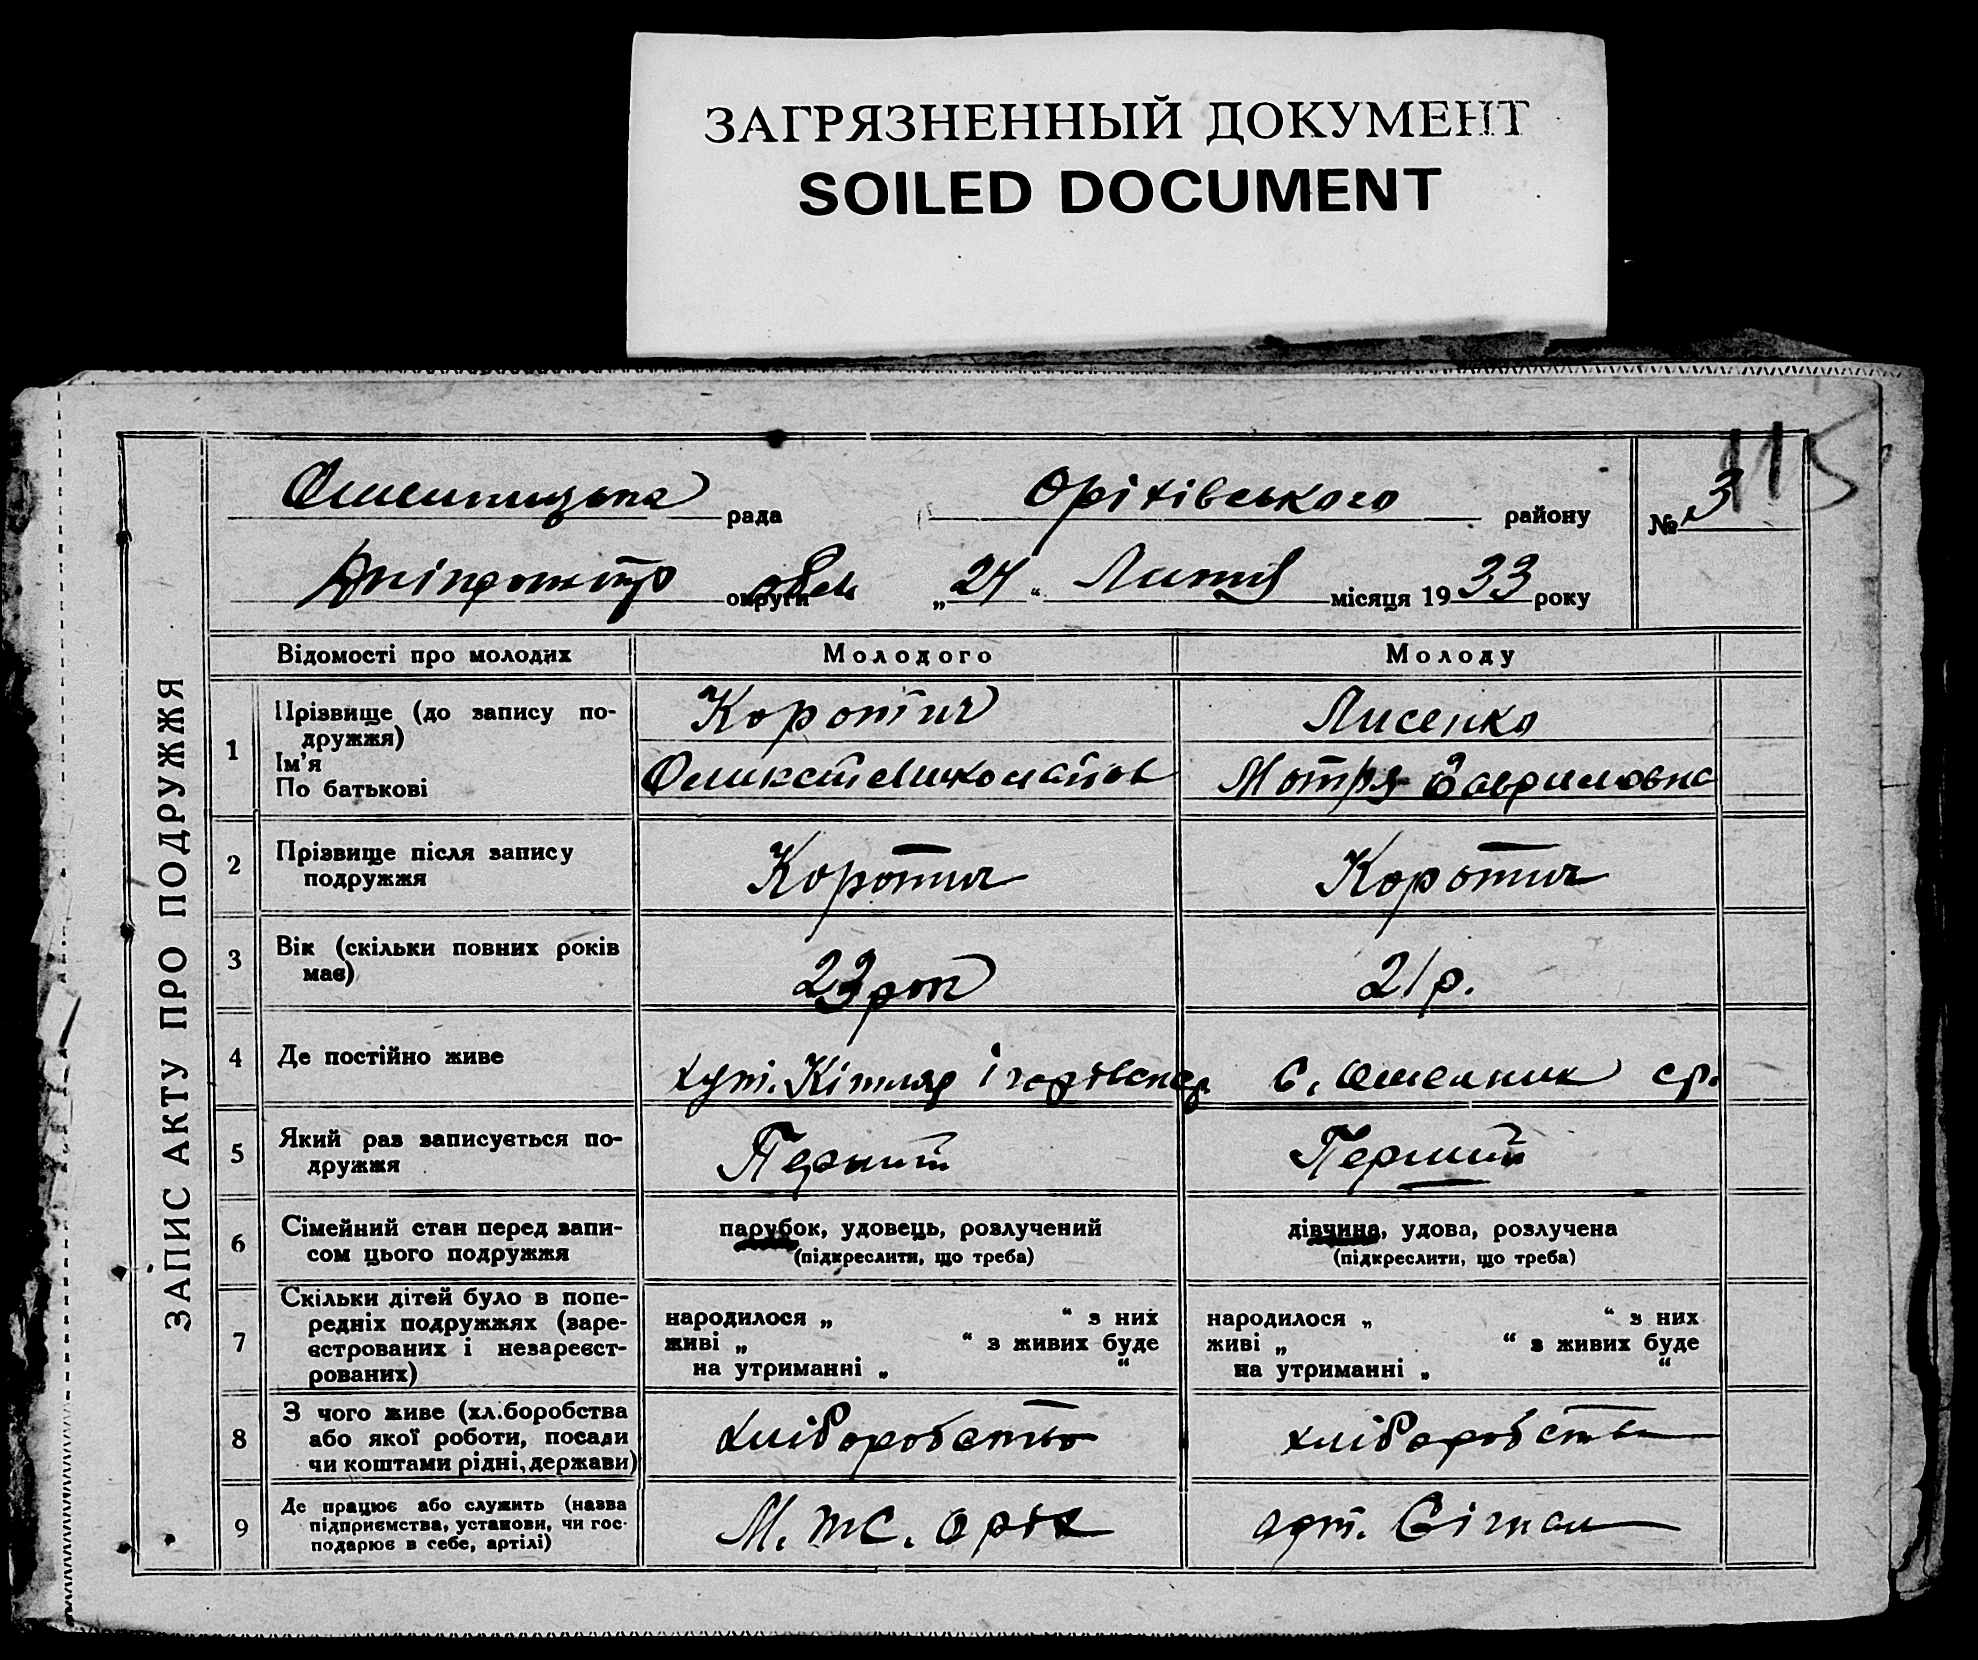 ЗАГРЯЗНЕННЫЙ ДОКУМЕНТ
SOILED DOCUMENT
115
рада Оріхівського району № 3
округи обл „24“ місяця 1933 року
ЗАПИС АКТУ ПРО ПОДРУЖЖЯ
Відомості про молодих Молодого Молоду
1 Прізвище (до запису по-
дружжя) Коротич Лисенко
Ім'я
По батькові Мотря Гавриловна
2 Прізвище після запису
подружжя Коротич Коротич
3 Вік (скільки повних років
має) 23 рок 21 р.
4 Де постійно живе хут. с.
5 Який раз записується по-
дружжя Перший Перший
6 Сімейний стан перед запи- парубок, удовець, розлучений дівчина, удова, розлучена
сом цього подружжя (підкреслити, що треба) (підкреслити, що треба)
7 Скільки дітей було в попе-
редніх подружжях (заре- народилося „ “ з них народилося „ “ з них
єстрованих і незареєст- живі „ “ з живих буде живі „ “ з живих буде
рованих) на утриманні „ “ на утриманні „ “
8 З чого живе (хл.боробства
або якої роботи, посади хліборобство хліборобство
чи коштами рідні, держави)
9 Де працює або служить (назва
підприємства, установи, чи гос- М. т с. оріх арт.
подарює в себе, артілі)